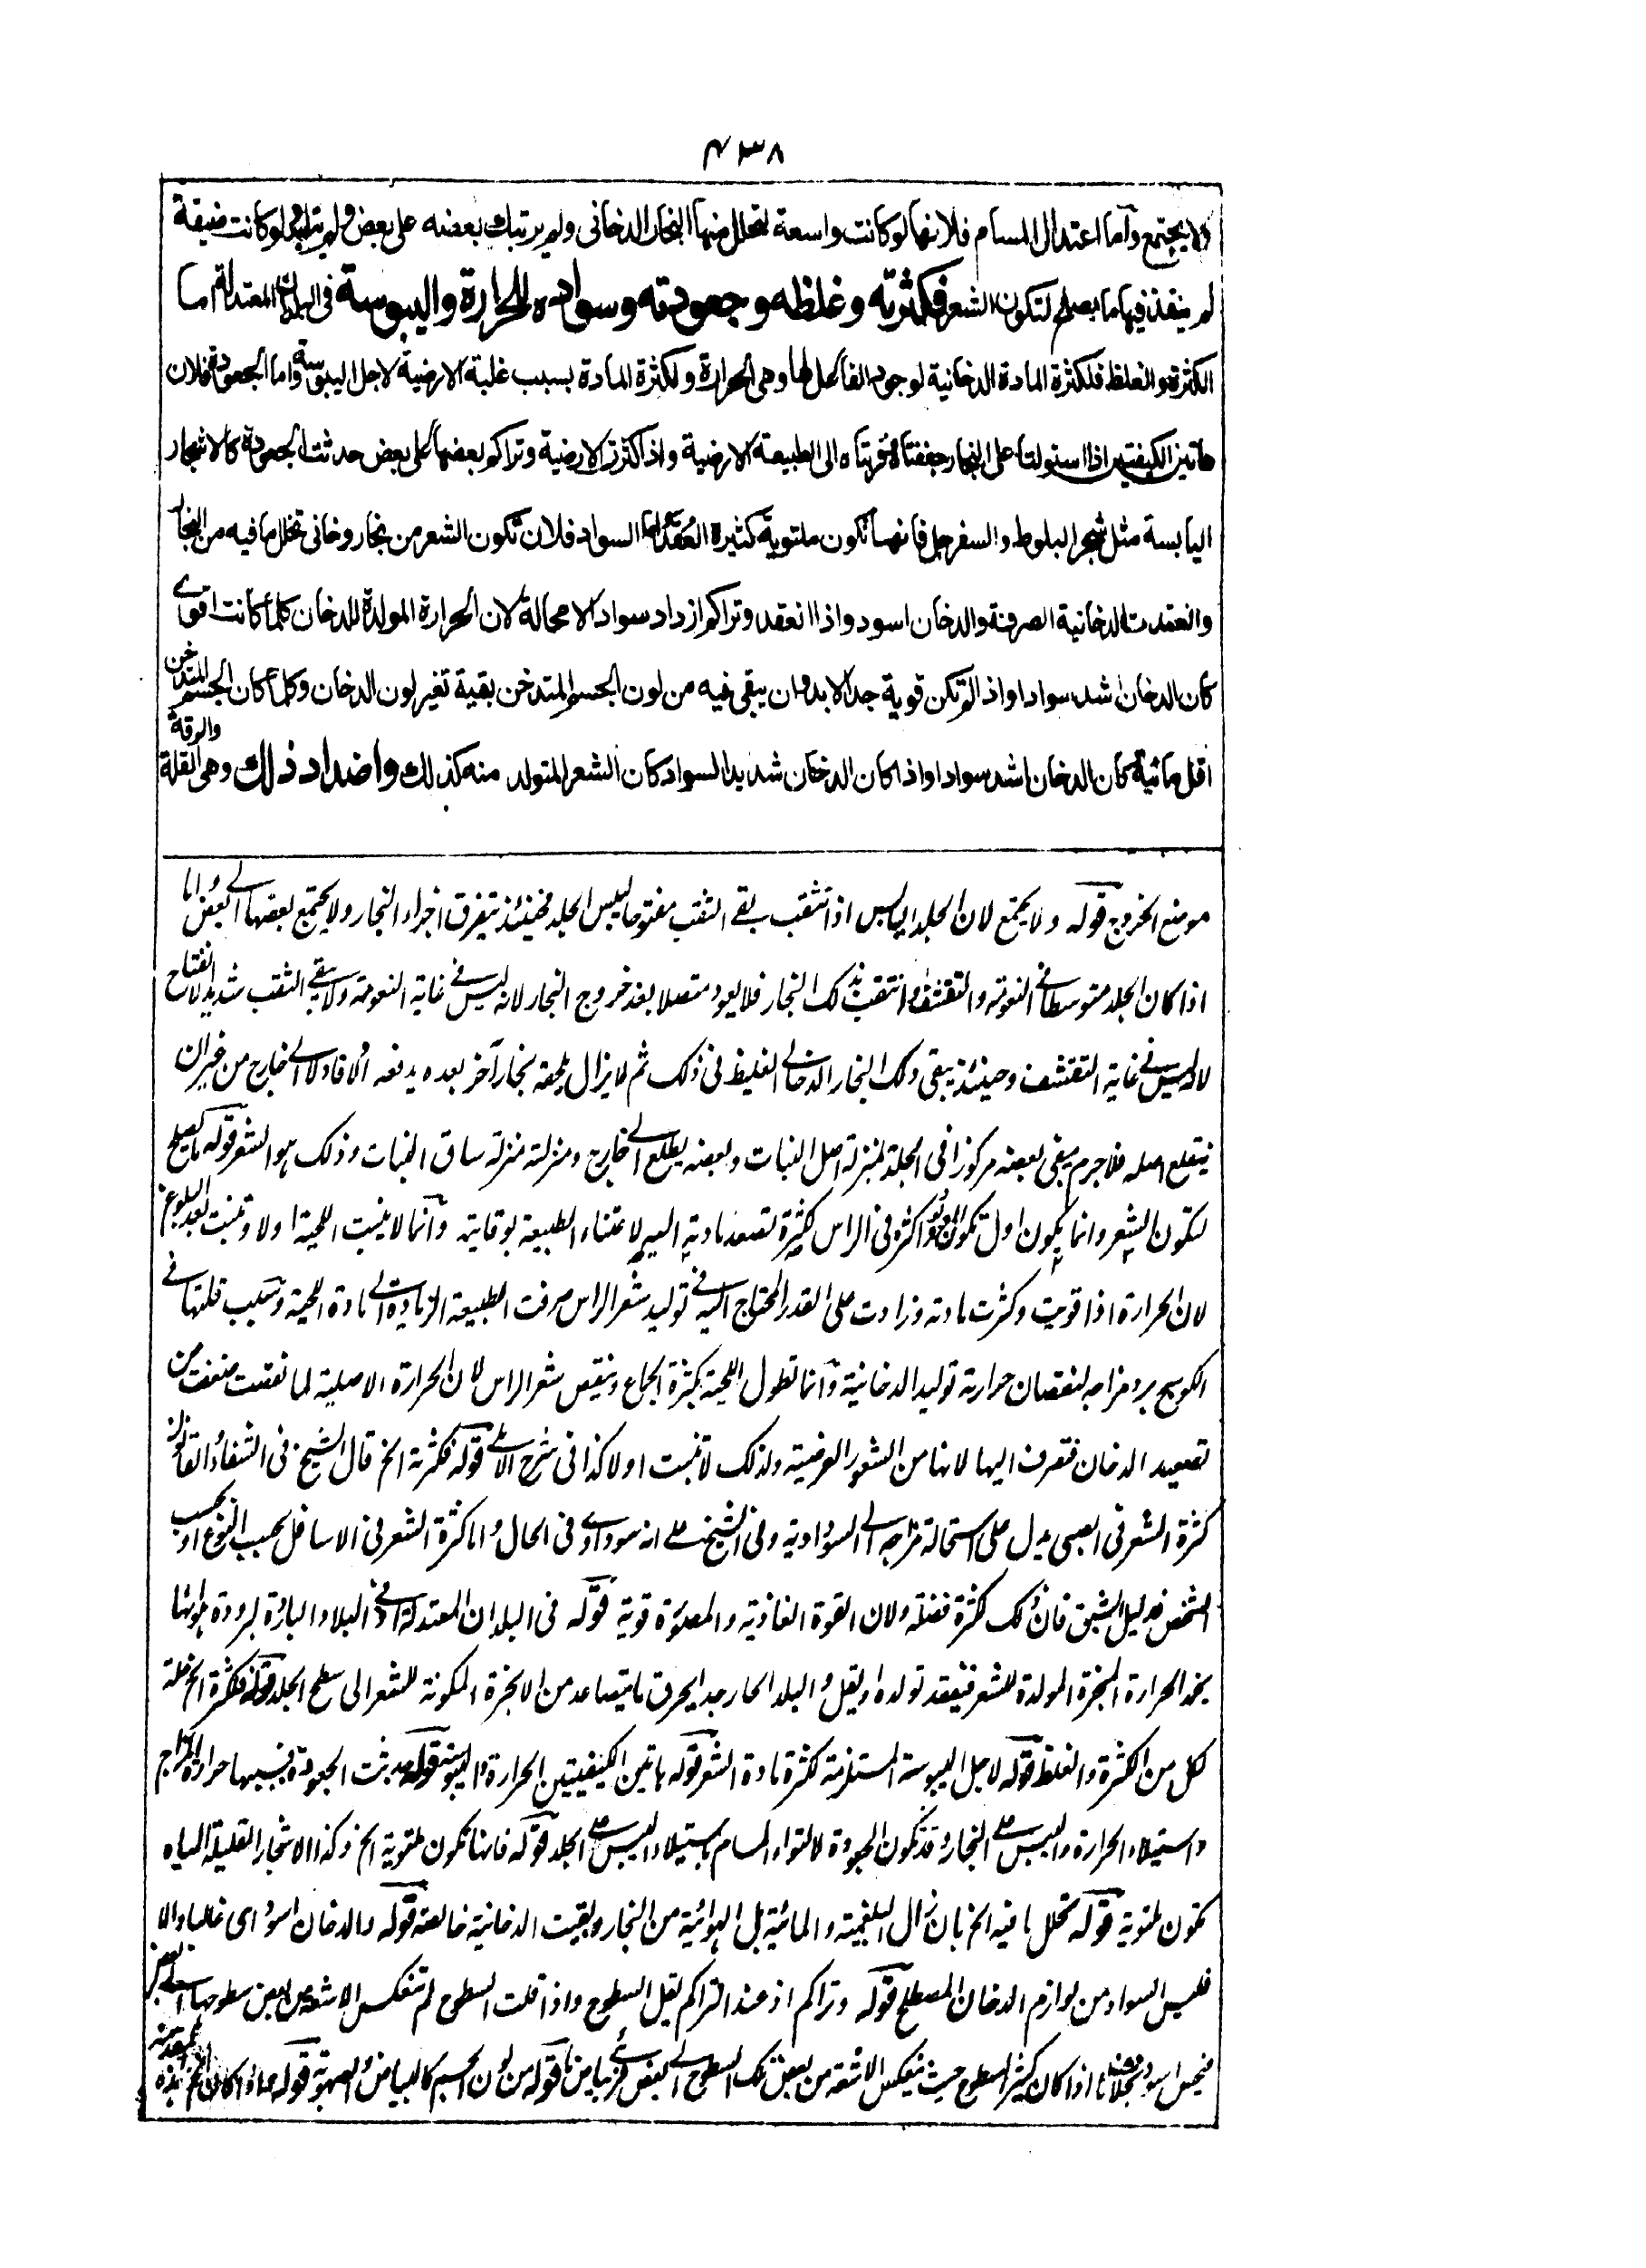 ۴۳۸
ولا يجتمع واما اعتدال المسام فلانها لو كانت واسعة لتحلل منها البخار الدخانى ولم يرتبك بعضه على بعض ولم يتلبد ولو كانت ضيقة
لم ينفذ فيها ما يصلح لتكون الشعر فكثرته وغلظه وجعودته وسواده للحرارة واليبوسة فى البلدان المعتدلة اما
الكثرة والغلظ فلكثرة المادة الدخانية لوجود الفاعل لها وهى الحرارة ولكثرة المادة بسبب غلبة الارضية لاجل اليبوسة واما الجعودة فلان
هاتين الكيفيتين اذا استولتا على البخار جففتاه وقربتاه الى الطبيعة الارضية واذا كثرت الارضية وتراكم بعضها على بعض حدثت الجعودة كالاشجار
اليابسة مثل شجر البلوط والسفرجل فانها تكون ملتوية كثيرة العقد واما السواد فلان تكون الشعر من بخار دخانى تحلل ما فيه من البخار
وانعقدت الدخانية الصرفة والدخان اسود واذا انعقد وتراكم ازداد سوادا لا محالة لان الحرارة المولدة للدخان كلما كانت اقوى
كان الدخان اشد سوادا واذا لم تكن قوية جدا لابد وان يبقى فيه من لون الجسم المتدخن بقية تغير لون الدخان وكلما كان الجسم المتدخن
اقل مائية كان الدخان اشد سوادا واذا كان الدخان شديد السواد كان الشعر المتولد منه كذلك واضداد ذلك وهى القلة والرقة
موضع الخروج قوله ولا يجتمع لان الجلد اليابس اذا تثقب بقى الثقب مفتوحا ليبس الجلد فحينئذ يتفرق اجزاء البخار ولا يجتمع بعضها الى بعض واما
اذا كان الجلد متوسطا فى النعومة والتقشف وانثقب بذلك البخار فلا يعود متصلا بعد خروج البخار لانه ليس فى غاية النعومة ولا يبقى الثقب شديد الانفتاح
لانه ليس فى غاية التقشف وحينئذ يبقى ذلك البخار الدخانى الغليظ فى ذلك ثم لا يزال يلحقه بخار آخر بعده يدفعه اولا فاولا الى خارج من غير ان
ينقلع اصله فلا جرم يبقى بعضه مركوزا فى الجلد بمنزلة اصل النبات وبعضه يطلع الى خارج ومنزلته منزلة ساق النبات وذلك هو الشعر قوله ما يصلح
لتكون الشعر وانما يكون اول تكون واكثره فى الراس لكثرة تصعد مادته اليه لاعتناء الطبيعة بوقايته وانما لا ينبت اللحية اولا وتنبت بعد البلوغ
لان الحرارة اذا قويت وكثرت مادته وزادت على القدر المحتاج اليه فى توليد شعر الراس صرفت الطبيعة الزيادة الى مادة اللحية وسبب قلتها فى
الكوسج برد مزاجه لنقصان حرارته توليد الدخانية وانما تطول اللحية بكثرة الجماع وينقص شعر الراس لان الحرارة الاصلية لما نقصت ضعفت من
تصعيد الدخان فتصرف اليها لانها من الشعور العرضية ولذلك لا تنبت اولا كذا فى شرح قوله فكثرته الخ قال الشيخ فى الشفاء القانون
كثرة الشعر فى الصبى يدل على استحالة مزاجه الى السوداوية وفى الشيخ على انه سوداوى فى الحال واما كثرة الشعر فى الاسافل بحسب النوع او بحسب
الشخص فدليل الشبق فان ذلك كثرة فضله ولان القوة الغاذية والمصورة قوية قوله فى البلدان المعتدلة اذ فى البلاد الباردة لبرودة هوائها
يخمد الحرارة المبخرة المولدة للشعر فيفقد تولده او يقل والبلد الحار جدا يحرق ما يتصاعد من الابخرة المكونة للشعر الى سطح الجلد قوله فلكثرة الخ علة
لكل من الكثرة والغلظ قوله لاجل اليبوسة المستلزمة لكثرة مادة الشعر قوله هاتين الكيفيتين الحرارة واليبوسة قوله حدثت الجعودة فسببها حرارة المزاج
واستيلاء الحرارة واليبس على البخار وقد تكون الجعودة لالتواء المسام باستيلاء اليبس على الجلد قوله فانها تكون ملتوية الخ وكذا الاشجار القليلة المياه
تكون ملتوية قوله تحلل ما فيه الخ بان زال البلغمية والمائية بل الهوائية من البخار وبقيت الدخانية خالصة قوله والدخان اسود اى غالبا والا
فليس السواد من لوازم الدخان المصطلح قوله وتراكم اذ عند التراكم يقل السطوح واذا قلت السطوح لم تنعكس الاشعة من بعض سطوحها الى بعض
فيحس اسود بخلاف ما اذا كان كثير السطوح حيث ينعكس الاشعة من بعض تلك السطوح الى البعض فيرى بياض ما قوله من لون الجسم كالبياض والصهوبة قوله